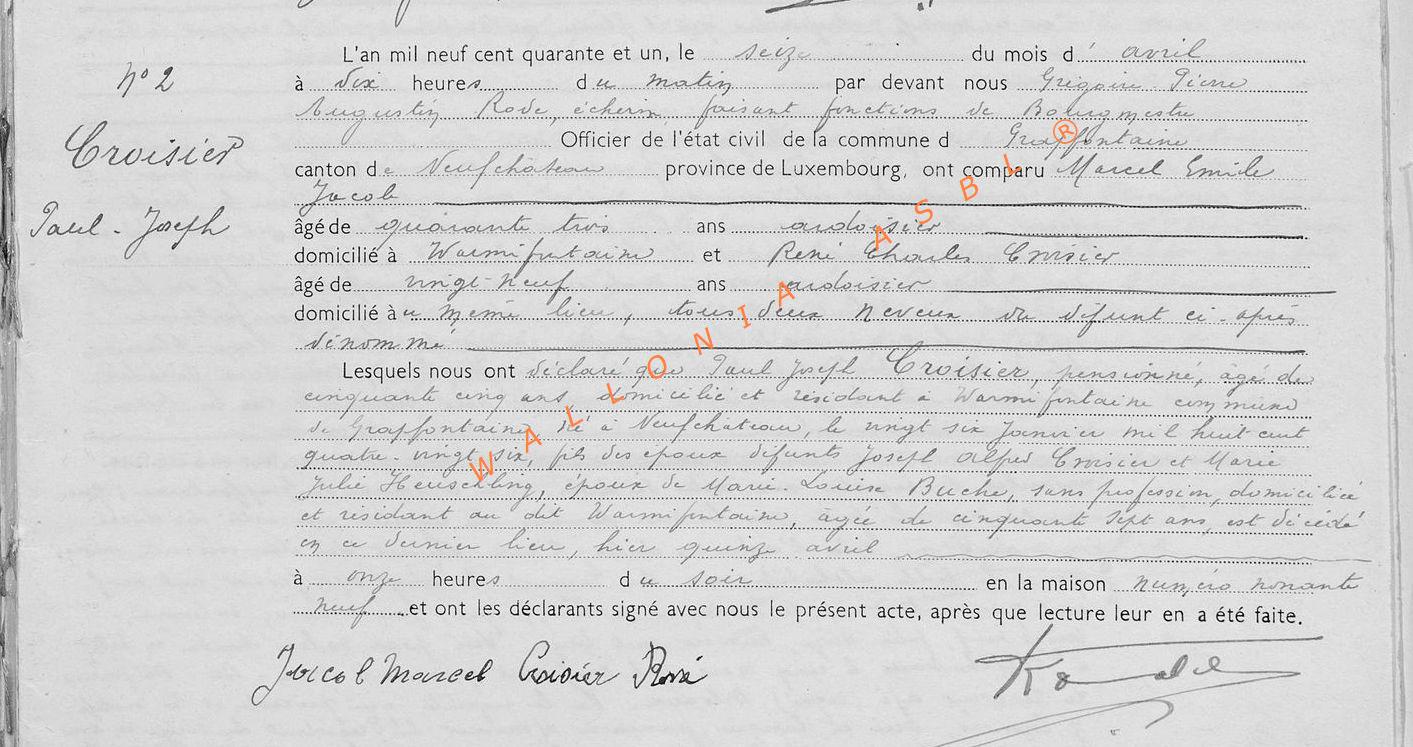 L'an mil neuf cent quarante et un, le seize du mois d' avril
N° 2
à dix heures du matin par devant nous Grégoire Pierre
Augustin Rode, échevin, faisant fonctions de Bourgmestre
Officier de l'état civil de la commune d Grapfontaine
Croisier
canton de Neufchâteau province de Luxembourg, ont comparu Marcel Emile
Jacob
Paul - Joseph
âgé de quarante trois ans ardoisier
domicilié à Warmifontaine et René Charles Croisier
âgé de vingt-neuf ans ardoisier
domicilié au même lieu, tous deux neveux du défunt ci-après
dénommé
Lesquels nous ont déclaré que Paul Joseph Croisier, pensionné, âgé de
cinquante cinq ans, domicilié et résidant à Warmifontaine commune
de Grapfontaine, né à Neufchâteau, le vingt six Janvier mil huit cent
quatre-vingt six, fils des époux défunts Joseph Alfred Croisier et Marie
Julie Heuschling, époux de Marie Louise Buche, sans profession, domiciliée
et résidant au dit Warmifontaine, âgée de cinquante sept ans, est décédé
en ce dernier lieu, hier quinze avril
à onze heures du soir en la maison numéro nonante
neuf et ont les déclarants signé avec nous le présent acte, après que lecture leur en a été faite.
Jacob Marcel Croisier René
WALLONIA ASBL ®